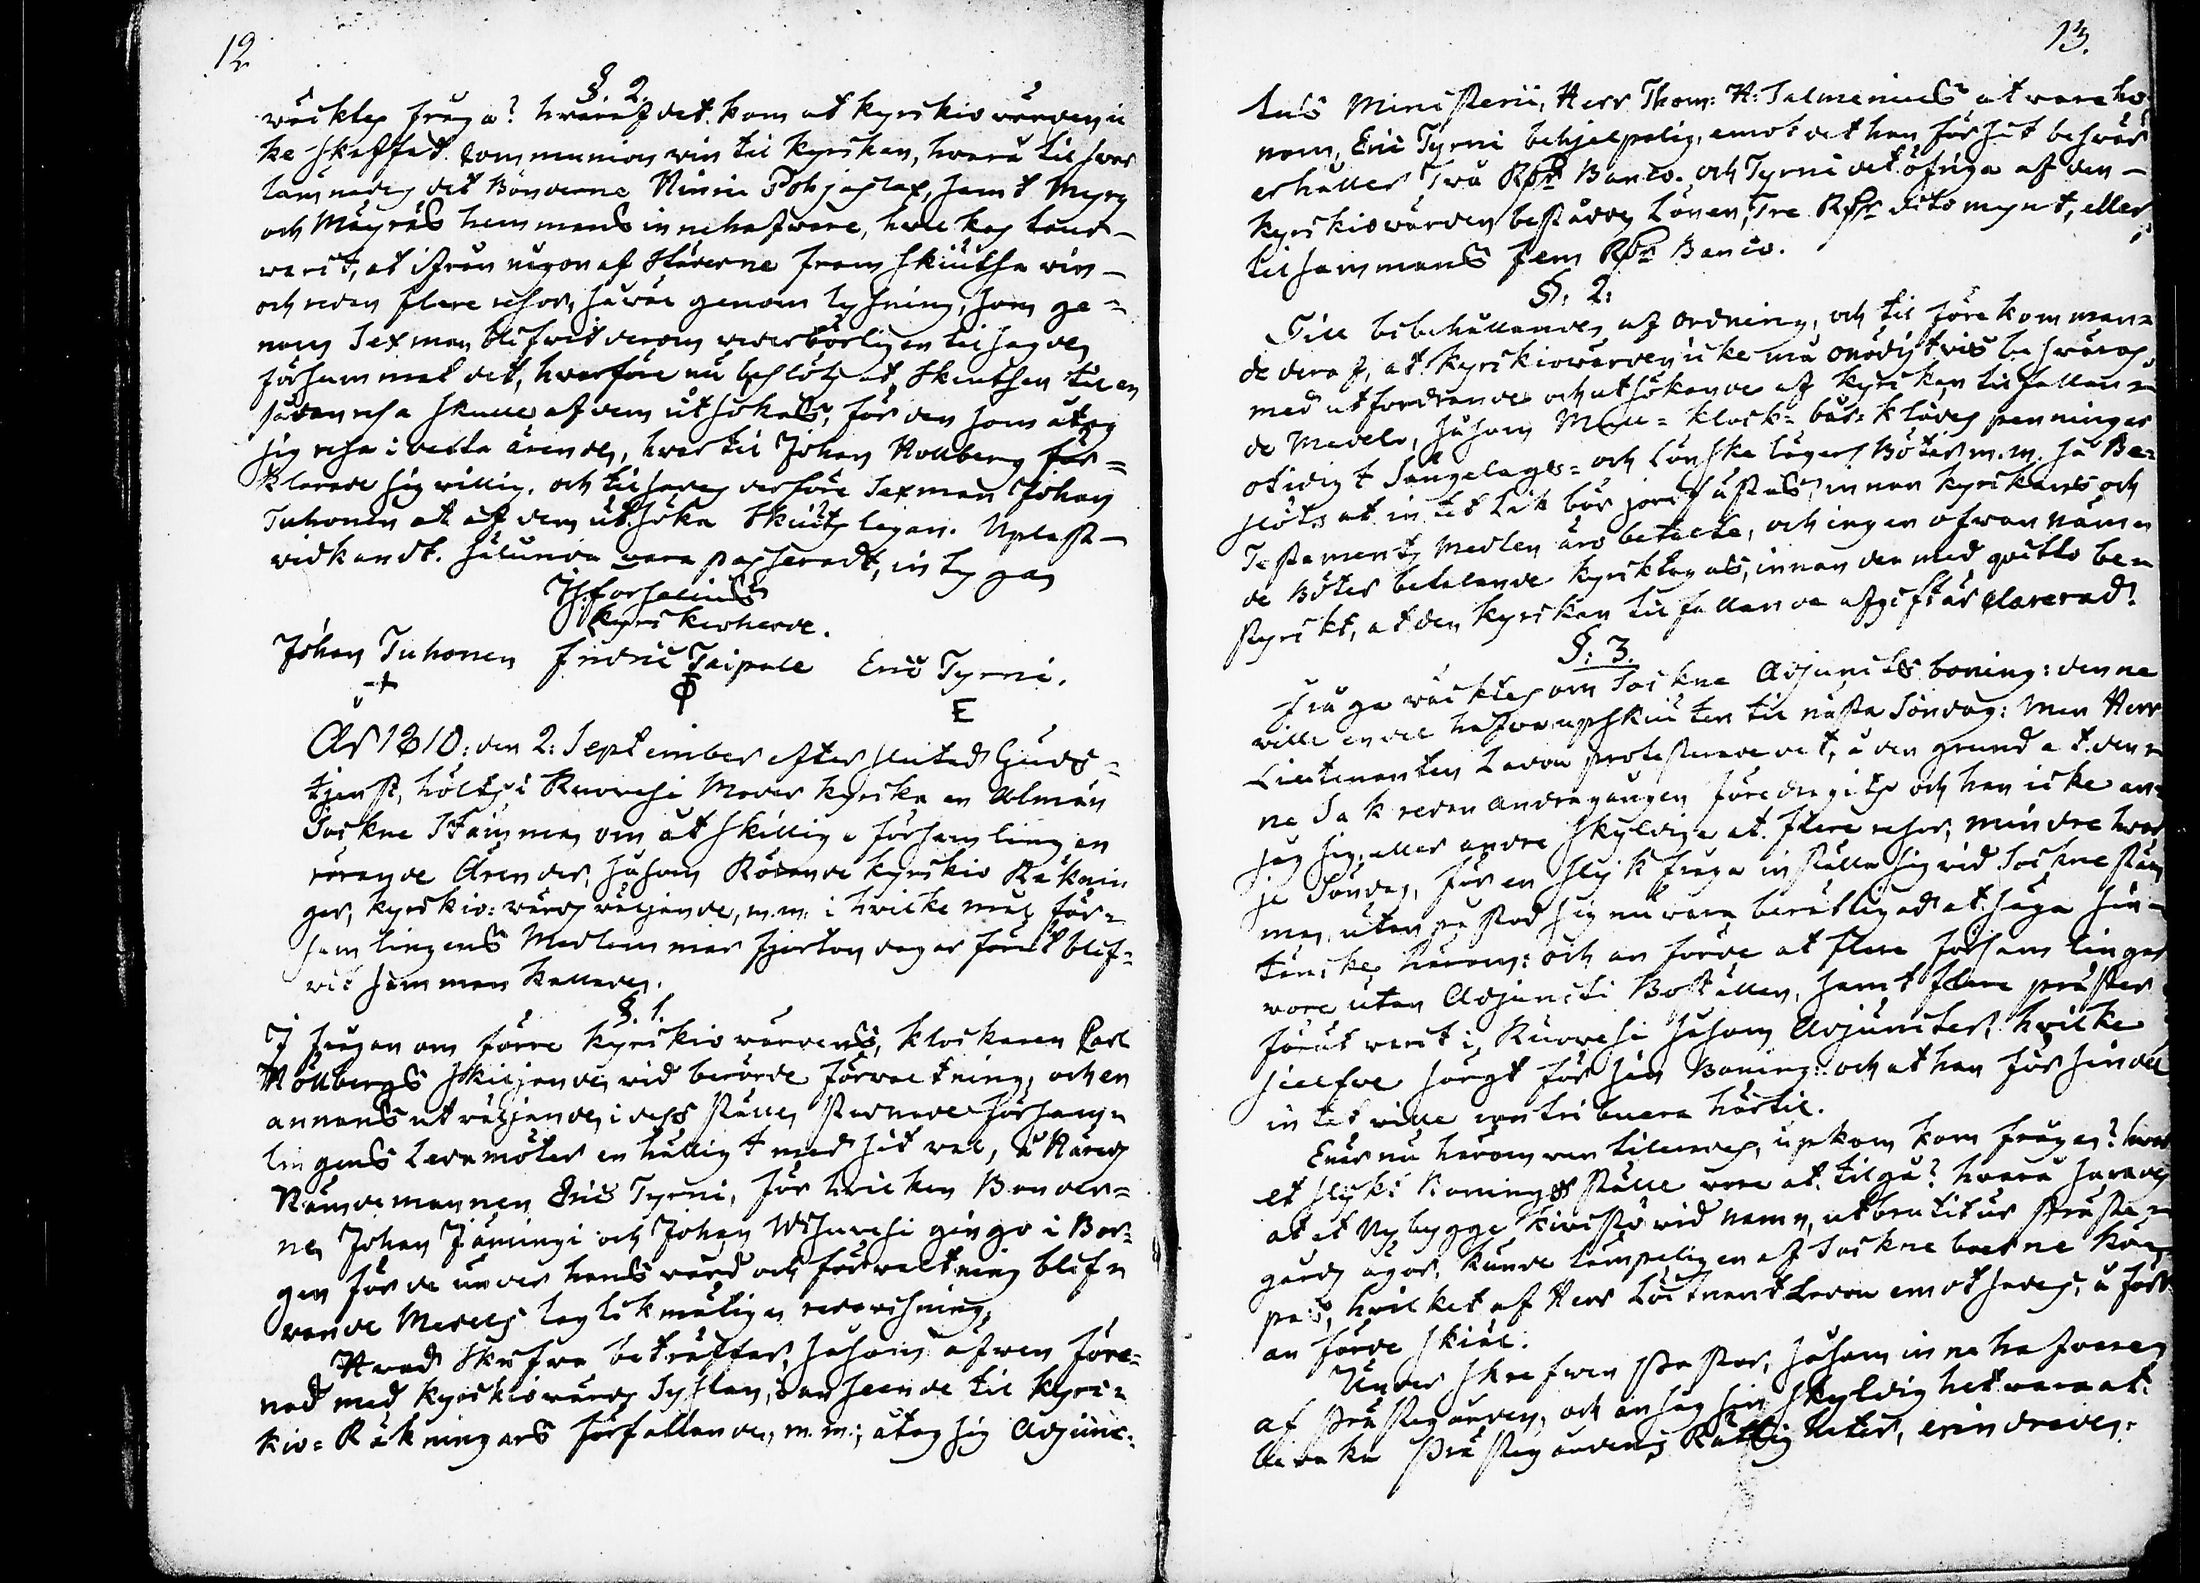 12
§. 2.
wäcktes fråga? hvaraf det kom at kyrckiovärden ic
ke skaffat communion win til kyrckan, hvarå til svar
lämnades det Bönderne Ninnii Pohjaslax, samt Myry
och Mäyräs hemmans innehafvare,
warit, at ifrån någon af Städerne fram skiutsa win
och redan flere resor, såväl genom lysning, som ge=
nom Sexman blifvit derom vederbörligen tilsagde,
försummat det, hvarföre nu beslöts at Skiutsen til en
sådan resa skulle af dem utsökas, för den som åtog
sig resa i detta ärende, hvartil Johan Mollberg för=
klarade sig willig, och tilsades derföre Sexman Johan
Tuhonen at af dem utsöka Skiuts legan. Upläst
widkändt. sålunda vara passeradt, intygas
Forselius
Kyrckioherde.
Johan Tuhonen Fredric Taipale Eric Tyrni.
E
År 1810: den 2: September efter slutad Guds=
tjenst, hölts i Ruovesi Moder kyrcka en Almän
Sockne Stämma om åtskillige församlingen
rörande Ärender, såsom Rörande kyrckio Räknin
gar, kyrckio=värds väljande, m.m. i hvilke mål för=
samlingens Medlemmar fjorton dagar förut blif=
vit sammankallade.
§. 1.
I frågan om förre kyrckiovärdens, klockaren Carl
Mollbergs skiljande, wid berörde förvaltning, och en
annans utväljande, i dess ställe, stadnade försam=
lingens Ledamöter enhälligt med sit val, å Härads
Nämdemannen Eric Tyrni, för hvilken Bönder=
ne, Johan Jämingi och Johan Wisuvesi gingo i Bor=
gen för de under hans vård och förvaltning blif=
vande Medels laglikmätiga redovisning.
Hvad Skrifwa beträffar, såsom äfven före=
nad med kyrckiovärds Sysslan, i anseende til kyrc=
kio=Räkningars författande, m.m., åtog sig Adjunc=
13.
tus Ministerii, Herr Thom: H: Salmenius at vara ho
nom, Eric Tyrni behjelpelig, emot det han för sit besvär
erhåller Twå Rdr Banco. och Tyrni det öfriga af den
kyrckiowärden bestådde Lönen, Tre Rdr dito mynt, eller
tilsammans fem Rdr Banco.
§. 2:
Till bibehållande af ordning, och til förekomman=
de deraf, at kyrckiowärden icke må onödigtvis besväras
med utfordrande och utsökande af kyrckan tilfallan=
de Medel, såsom Mull= klock= bår=klädes penningar
otidigt Sängelags= och Lönska lägers Böter m.m. så Be=
slöts at intet Lik bör jordfästas, innan kyrckans och
Testaments Medlen äro betalte, och ingen ofvannämn=
de Böter betalande kyrcktagas, innan den med qvitto be=
styrckt, at den kyrckan tilfallande afgift är clarerad.
§: 3.
Fråga wäcktes om Sockne Adjuncts boning: denna
wille en del hafva upskiuten til nästa Söndag: Men Herr
Lieutenanten Lavon protesterade det, å den grund at den=
na Sak redan andra gången föredragits och han icke an=
såg sig, eller andre skyldige at flere resor, mindre hvar
je Söndag, för en slik fråga inställa sig vid Socknestäm
man, utan påstod sig nu vara berättigad at säga sin
tancke härom: och anförde at flere församlingar
wore utan Adjuncti Boställen, samt flere präster
förut warit i Ruovesi såsom Adjuncter, hvilke
sielfve sörgt för sin Boning: och at han för sin del
intet wille contribuera härtil.
Enär nu härom var tilända, upkom kom frågan? hvar
et slikt Bonings ställe vore at tilgå? hvarå svarades
at et Nybygge Kivistö vid namn, utbrutit ur Präste=
gårds ägor, kunde lämpeligen af Socknebörne köp=
pas, hvilket af Herr Löitnant Lavon emotsades, å förr
anförde skiäl.
Under skrefven Pastor, såsom innehafvare
af Prästegården, och ansåg sin skyldighet vara at
bevaka Prästegårdens Rättigheter, erindrade: